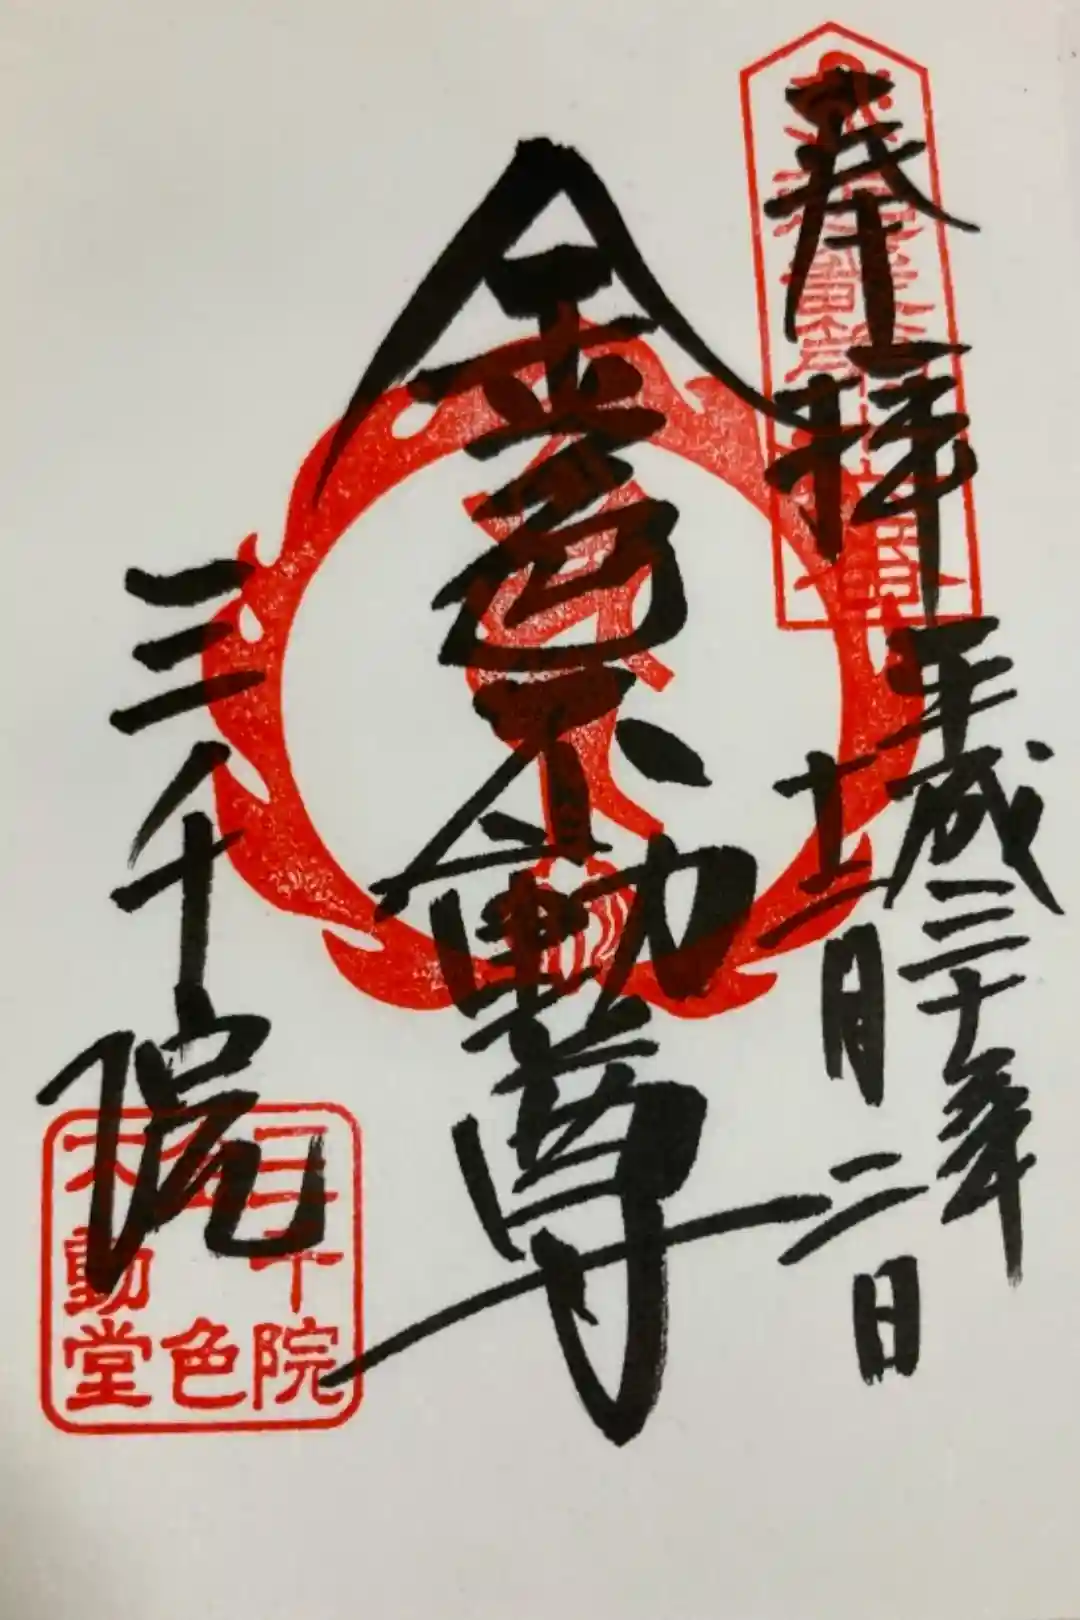 奉拝
平成三十年
十二月二日
金色不動尊
三千院
三千院
金色
不動堂